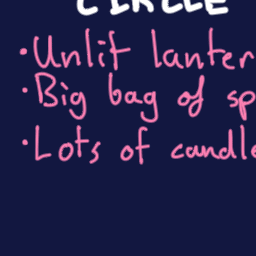 CIRCLE
• Unlit lanter
• Big bag of sp
• Lots of candle